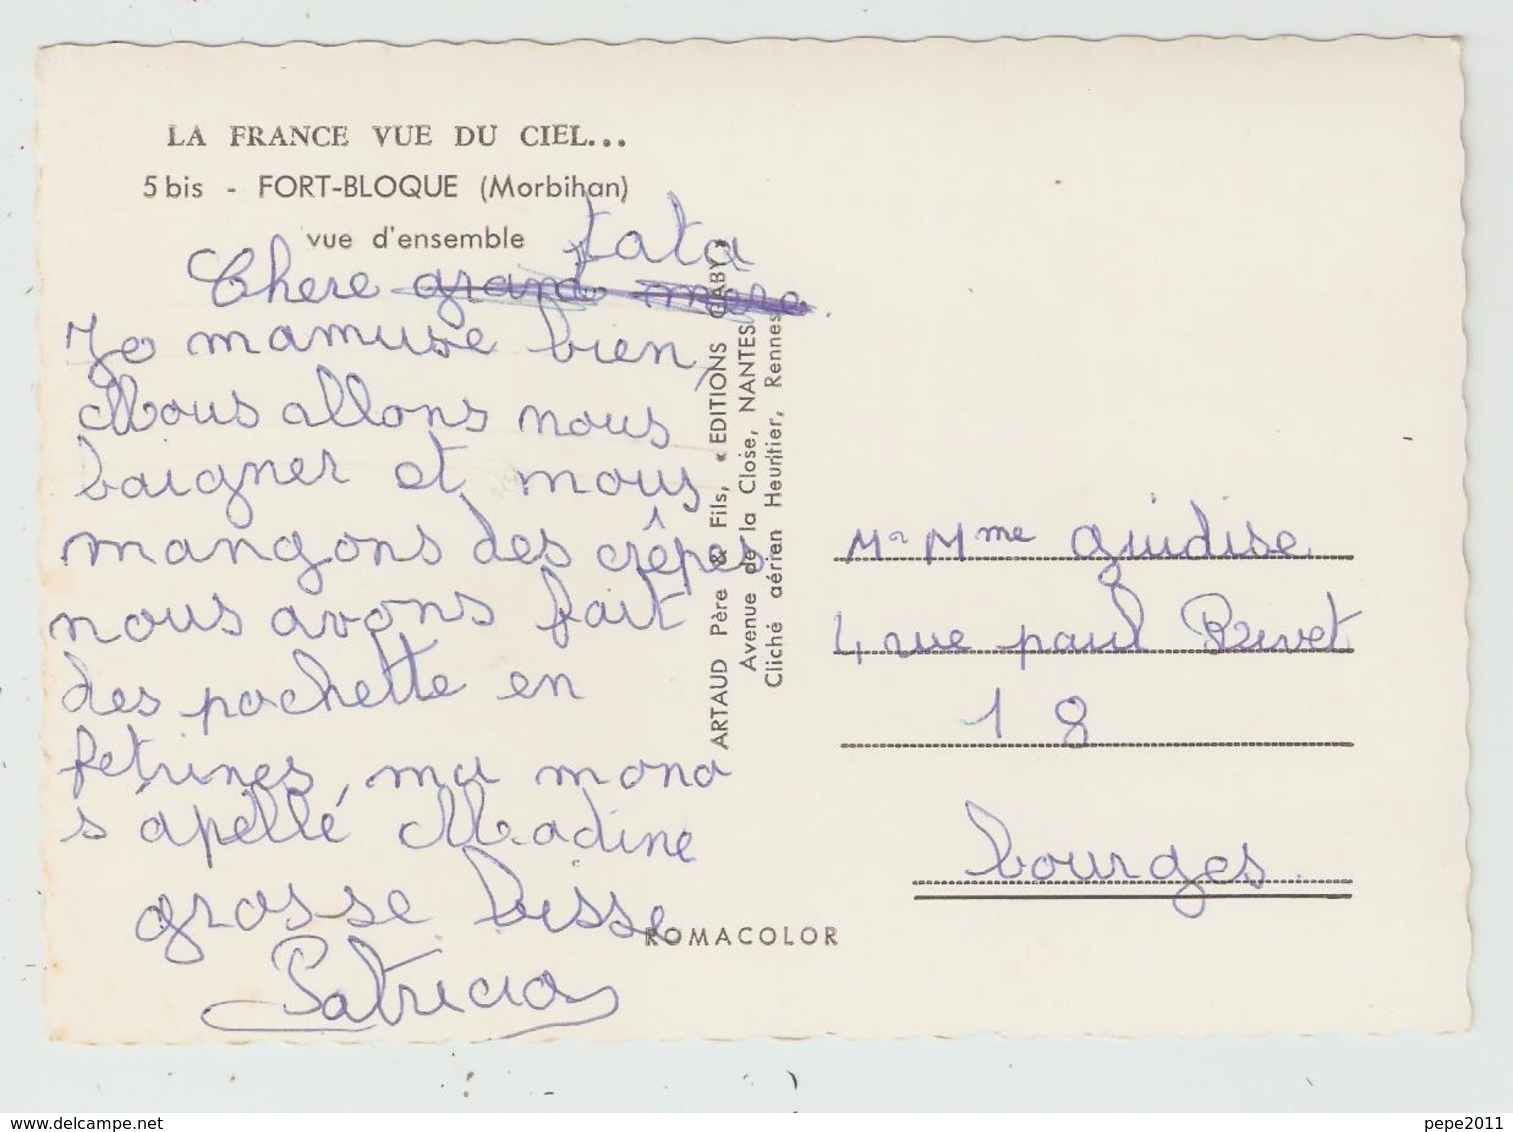 LA FRANCE VUE DU CIEL...
5 bis - FORT-BLOQUE (Morbihan)
vue d'ensemble
tata
Chere grand mere
Je mamuse bien,
Nous allons nous
baigner et nous
mangons des crêpes
nous avons fait
des pochette en
fetrines, ma mono
s'apellé Nadine
grosse bisse
Patricia
ARTAUD Père & Fils, « EDITIONS GABY »
Avenue de la Close, NANTES
Cliché aérien Heurtier, Rennes
ROMACOLOR
Mr Mme guidise
4 rue paul Rivet
18
bourges
www.delcampe.net
pepe2011